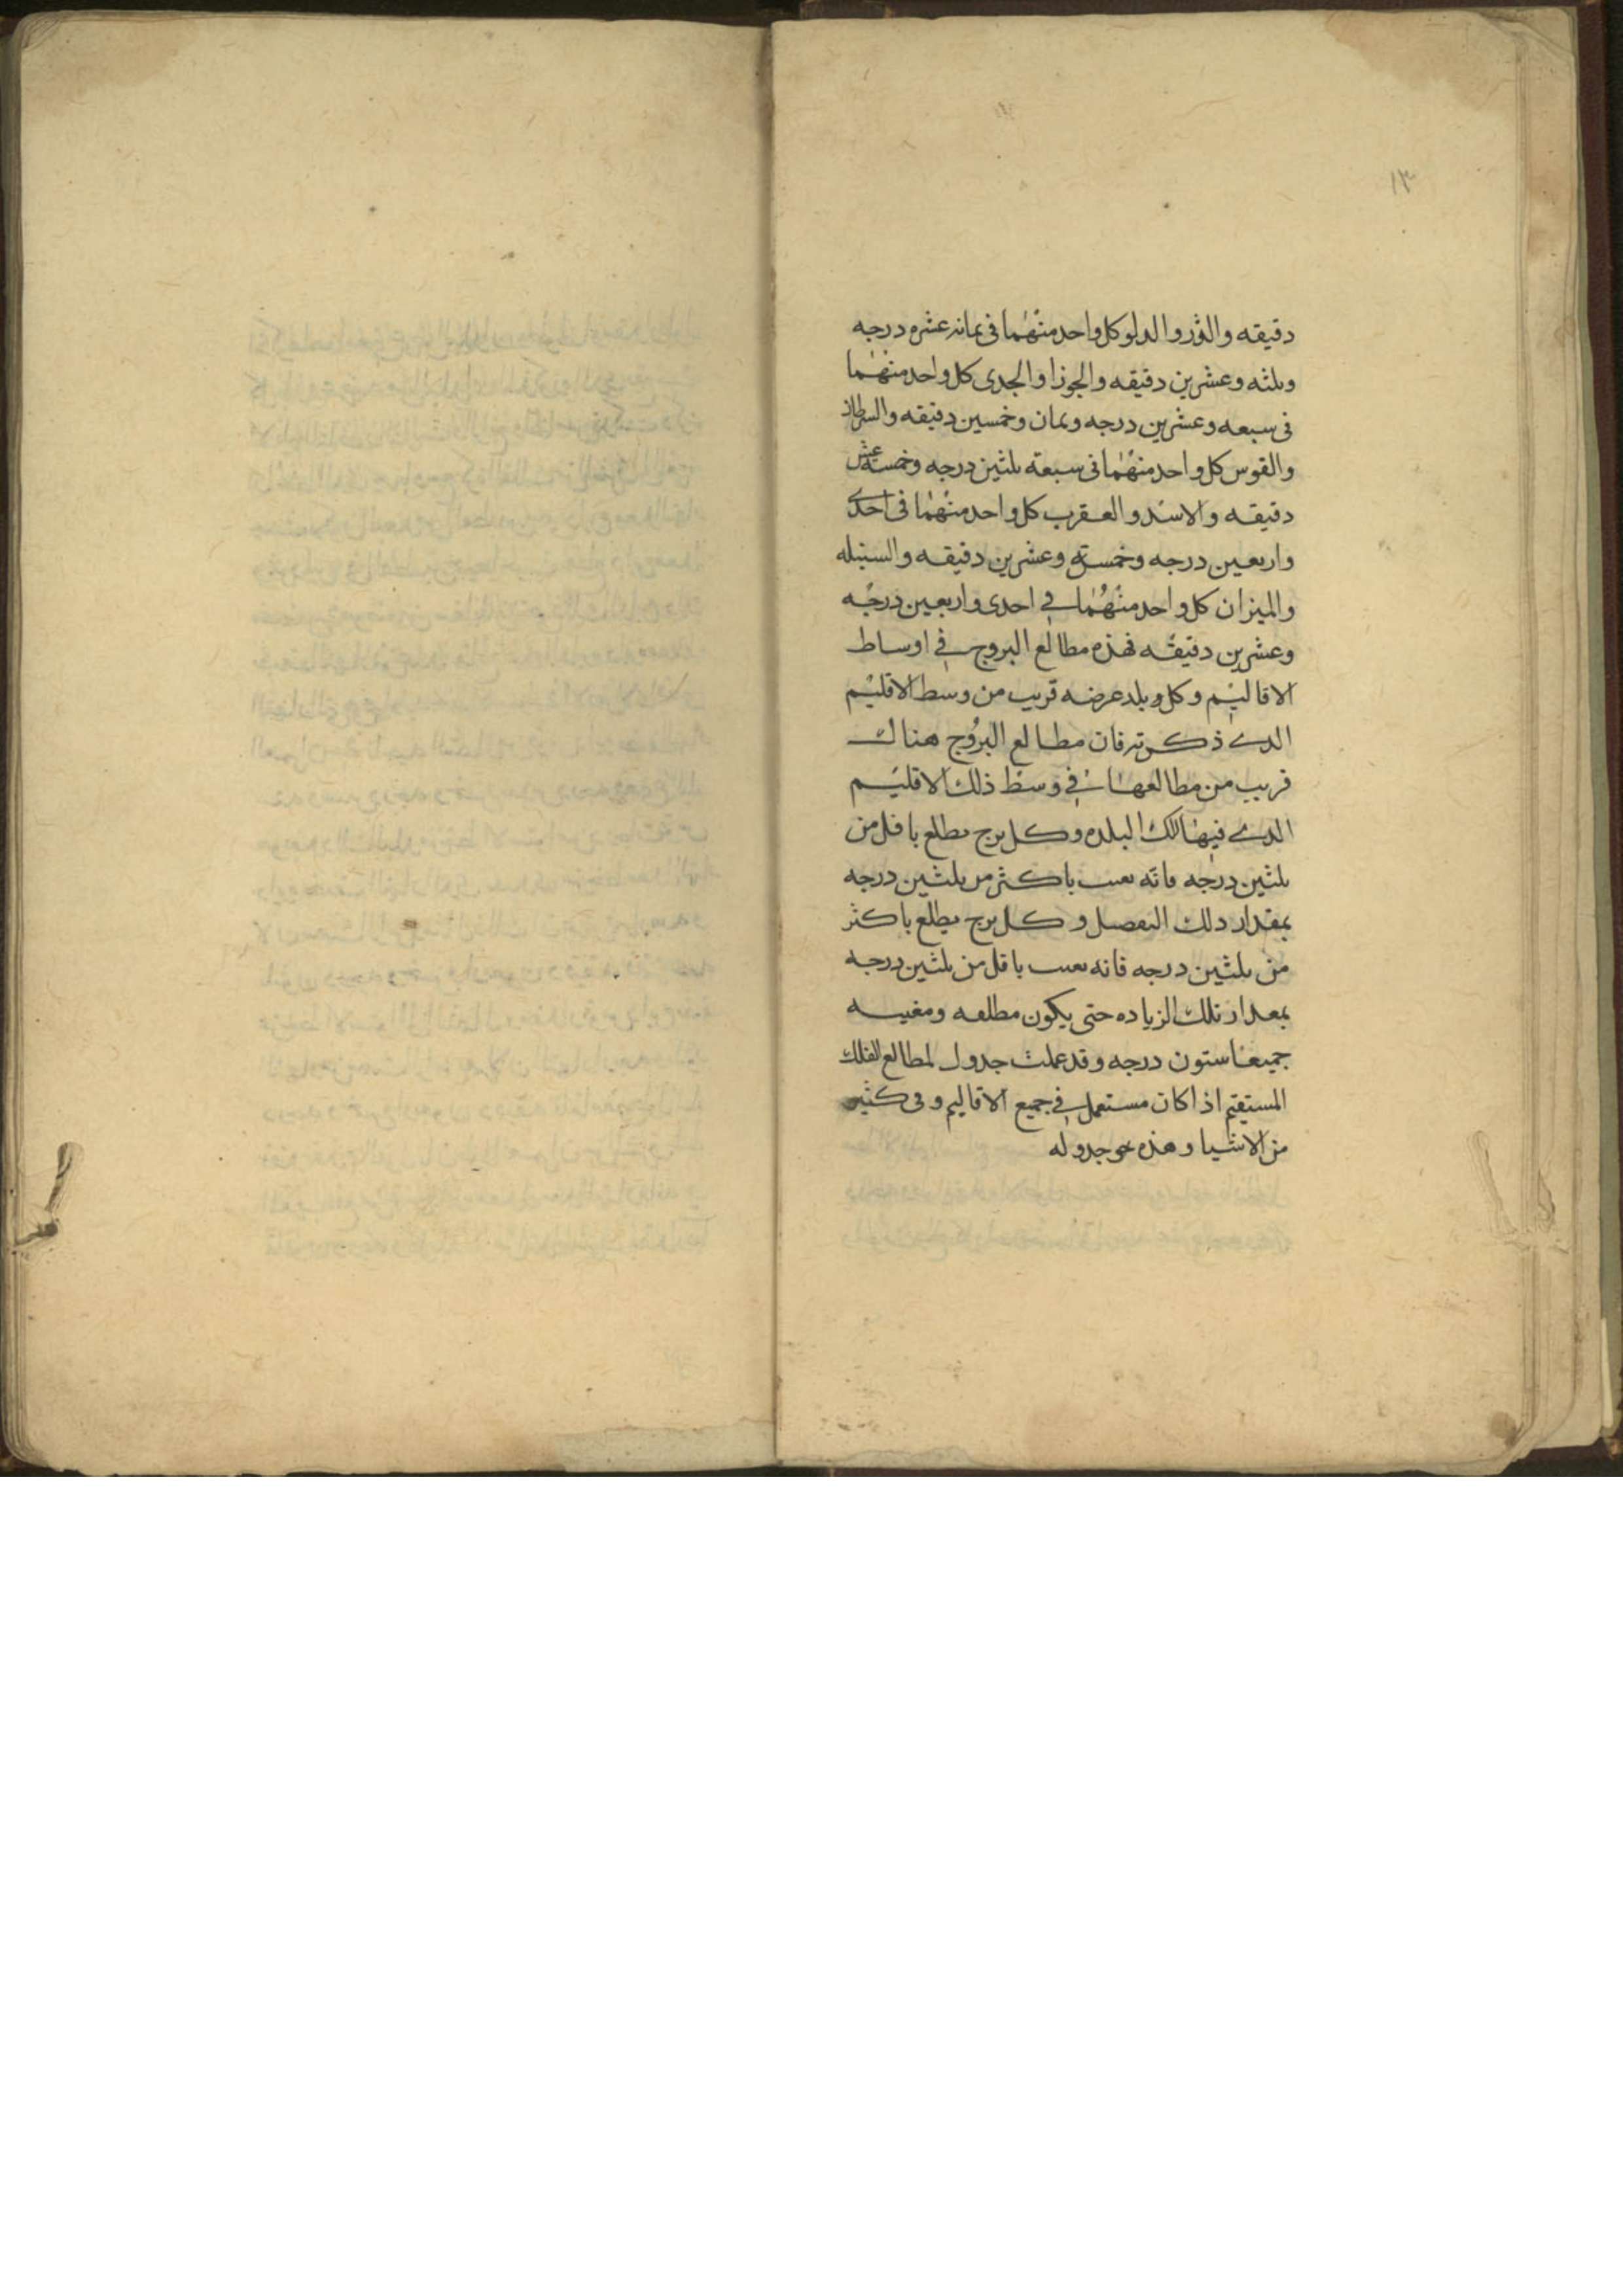 ١٣
دقيقه والثور والدلو كل واحد منهما فى ثمانيه عشره درجه
وثلثه وعشرين دقيقه والجوزا والجدى كل واحد منهما
فى سبعه وعشرين درجه وثمان وخمسين دقيقه والسرطان
والقوس كل واحد منهما فى سبعة ثلثين درجه وخمسة عشر
دقيقه والاسد والعقرب كل واحد منهما فى احدى
واربعين درجه وخمسة وعشرين دقيقه والسنبله
والميزان كل واحد منهما فى احدى واربعين درجه
وعشرين دقيقه فهذه مطالع البروج فى اوساط
الاقاليم وكل بلد عرضه قريب من وسط الاقليم
الدى ذكرته فان مطالع البروج هناك
قريب من مطالعها فى وسط ذلك الاقليم
الدى فيها تلك البلده وكل برج يطلع باقل من
ثلثين درجه فانه يغيب باكثر من ثلثين درجه
بمقدار دلك التفصيل وكل برج يطلع باكثر
من ثلثين درجه فانه يغيب باقل من ثلثين درجه
بمقدار تلك الزياده حتى يكون مطلعه ومغيبه
جميعا ستون درجه وقد عملت جدول لمطالع الفلك
المستقيم اذا كان مستعمل فى جميع الاقاليم وفى كثير
من الاشيا وهذه جدوله